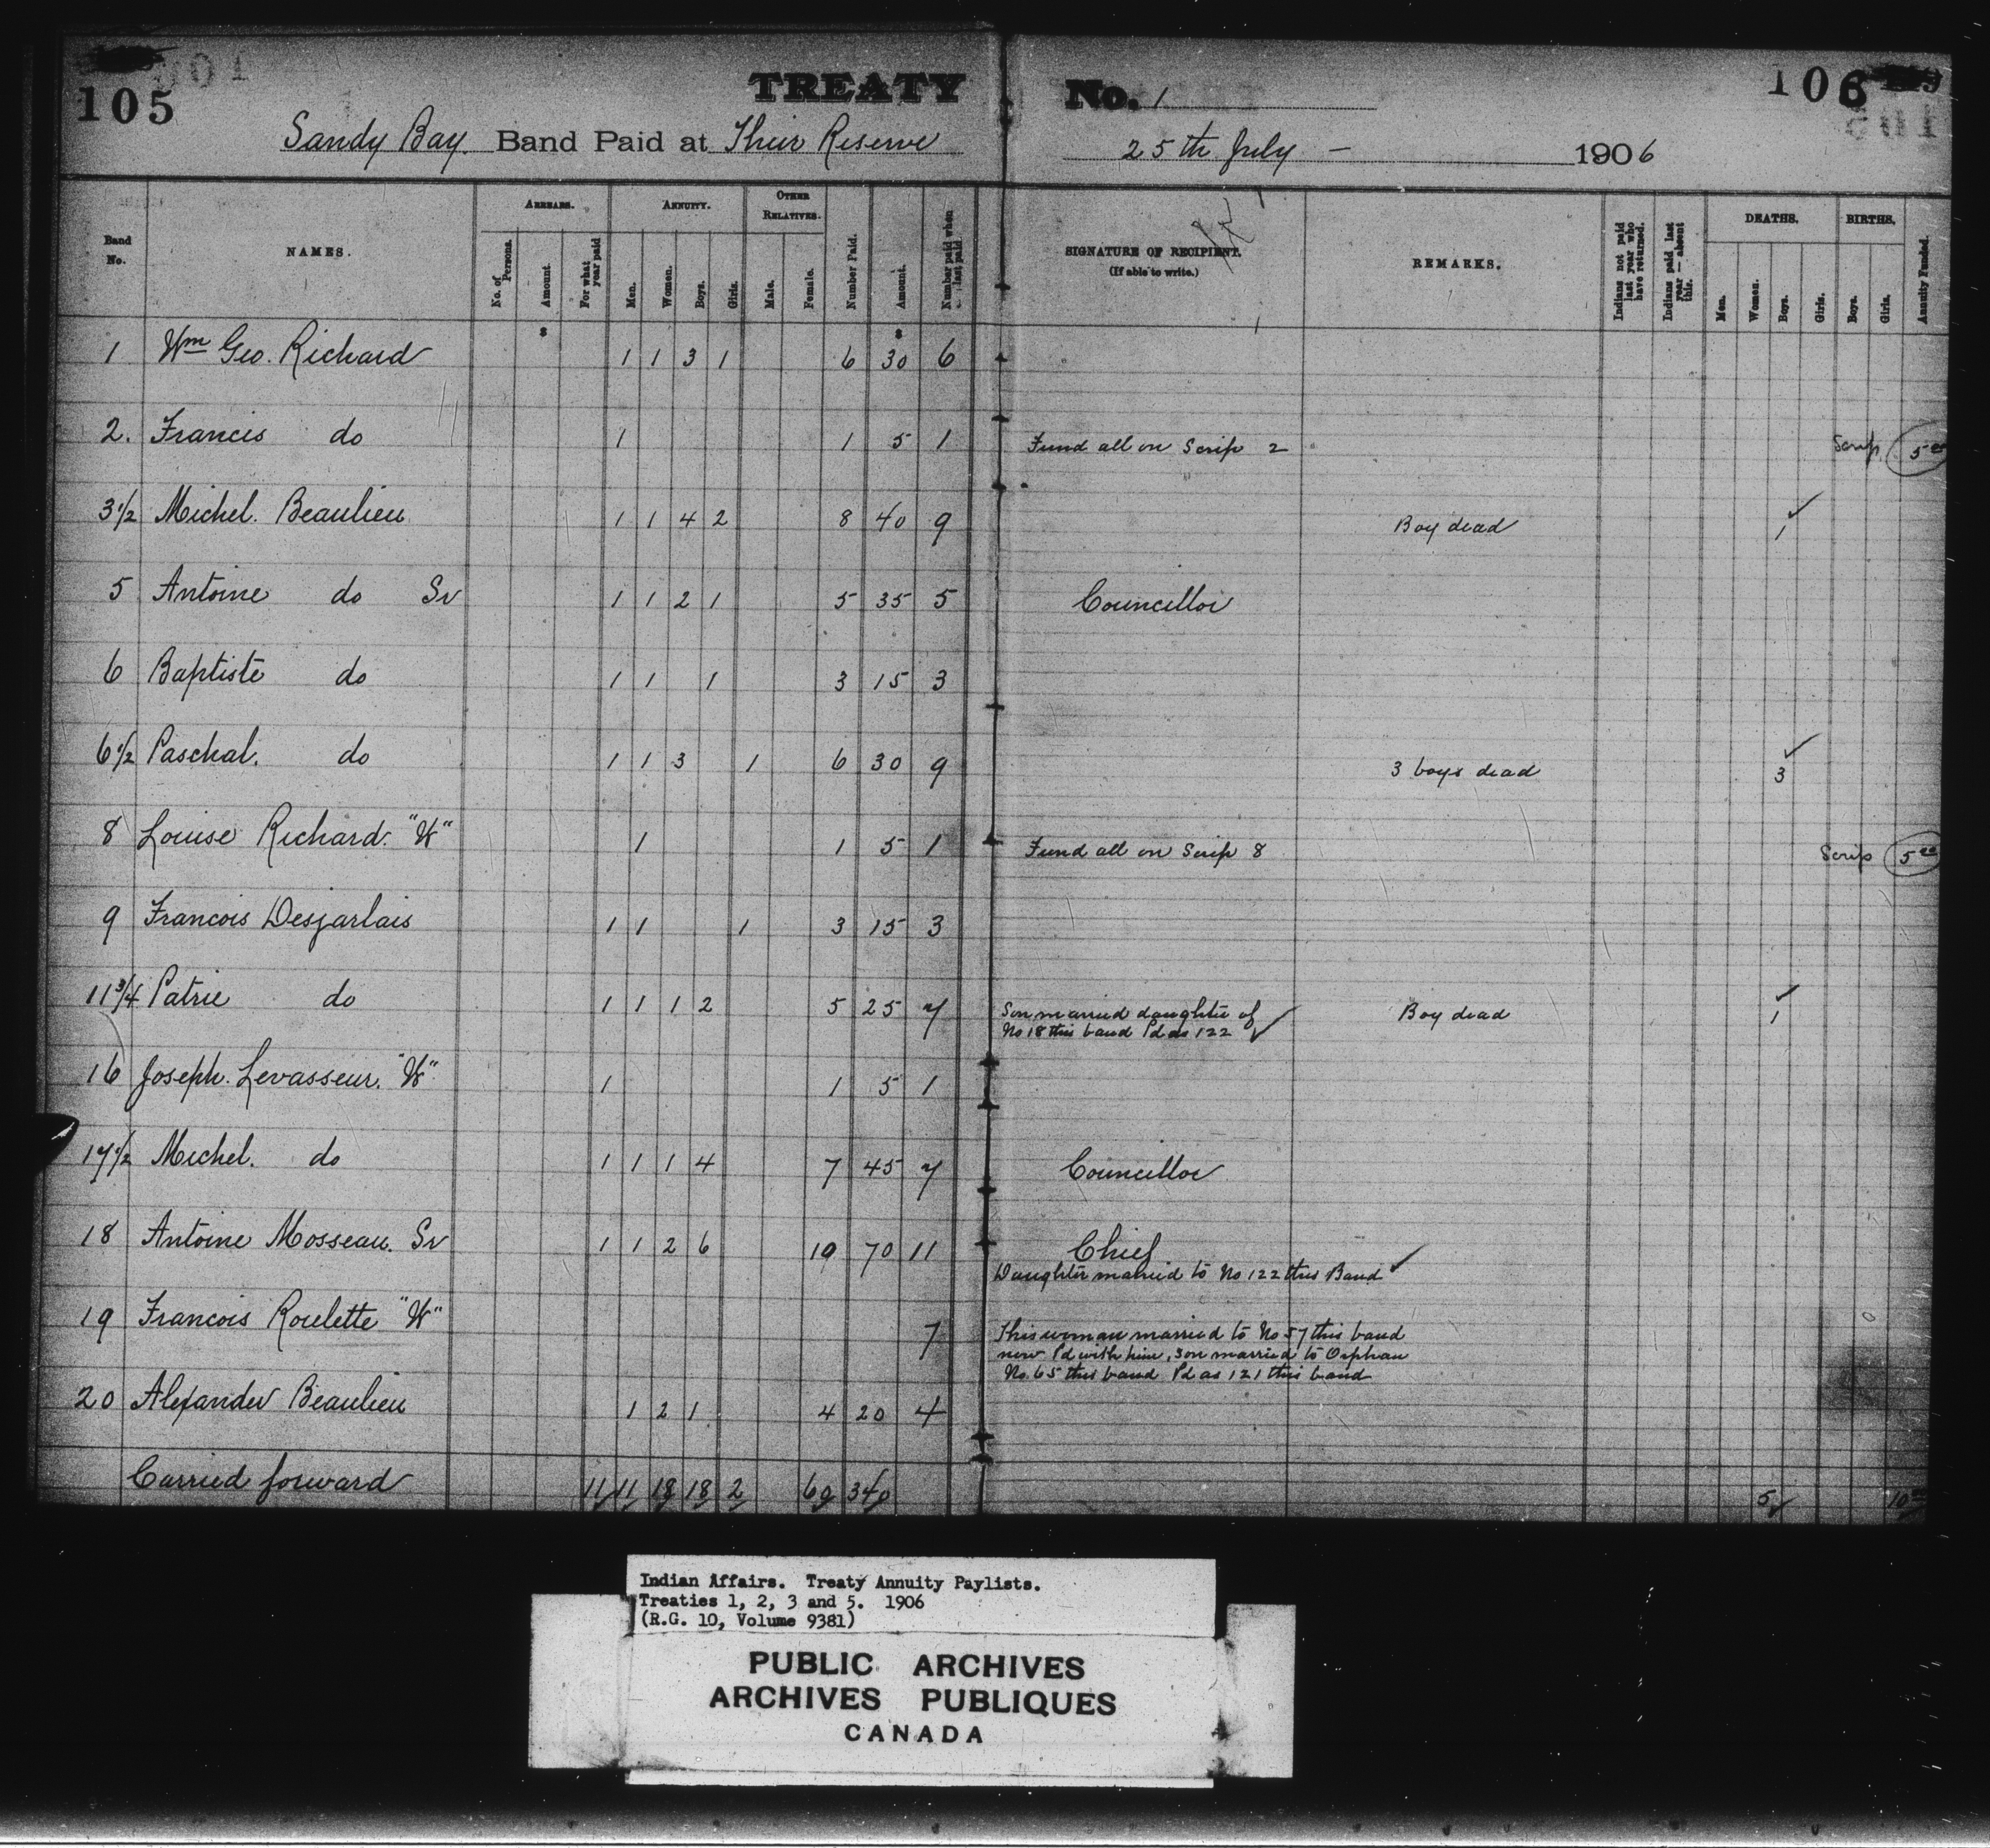 105
TREATY No. 1
106
Sandy Bay. Band Paid at Their Reserve 25th July - 1906
Band No. NAMES. ARREARS. No. of Persons. Amount. For what year paid ANNUITY. Men. Women. Boys. Girls. OTHER RELATIVES. Male. Female. Number Paid. Amount. Number paid when last paid
SIGNATURE OF RECIPIENT. (If able to write.) REMARKS. Indians not paid last year who have returned. Indians paid last year — absent this. DEATHS. Men. Women. Boys. Girls. BIRTHS. Boys. Girls. Annuity Funded.
1 Wm Geo. Richard 1 1 3 1 6 30 6
2. Francis do 1 1 5 1 Fund all on Scrip 2 Scrip 5 00
3 1/2 Michel. Beaulieu 1 1 4 2 8 40 9 Boy dead 1 ✓
5 Antoine do Sr 1 1 2 1 5 35 5 Councillor
6 Baptiste do 1 1 1 3 15 3
6 1/2 Paschal. do 1 1 3 1 6 30 9 3 boys dead 3 ✓
8 Louise Richard. "W" 1 1 5 1 Fund all on Scrip 8 Scrip 5 00
9 Francois Desjarlais 1 1 1 3 15 3
11 3/4 Patrie do 1 1 1 2 5 25 7 Son married daughter of Boy dead 1 ✓
No 18 this band Pd as 122 ✓
16 Joseph. Levasseur. "W" 1 1 5 1
17 1/2 Michel. do 1 1 1 4 7 45 7 Councillor
18 Antoine Mosseau. Sr 1 1 2 6 10 70 11 Chief
Daughter married to No 122 this Band ✓
19 Francois Roulette "W" 7 This woman married to No 57 this band
now Pd with him, son married to Orphan
No. 65 this band Pd as 121 this band
20 Alexander Beaulieu 1 2 1 4 20 4
Carried forward 11 11 18 18 2 60 340 5 10 00
Indian Affairs. Treaty Annuity Paylists.
Treaties 1, 2, 3 and 5. 1906
(R.G. 10, Volume 9381)
PUBLIC ARCHIVES
ARCHIVES PUBLIQUES
CANADA